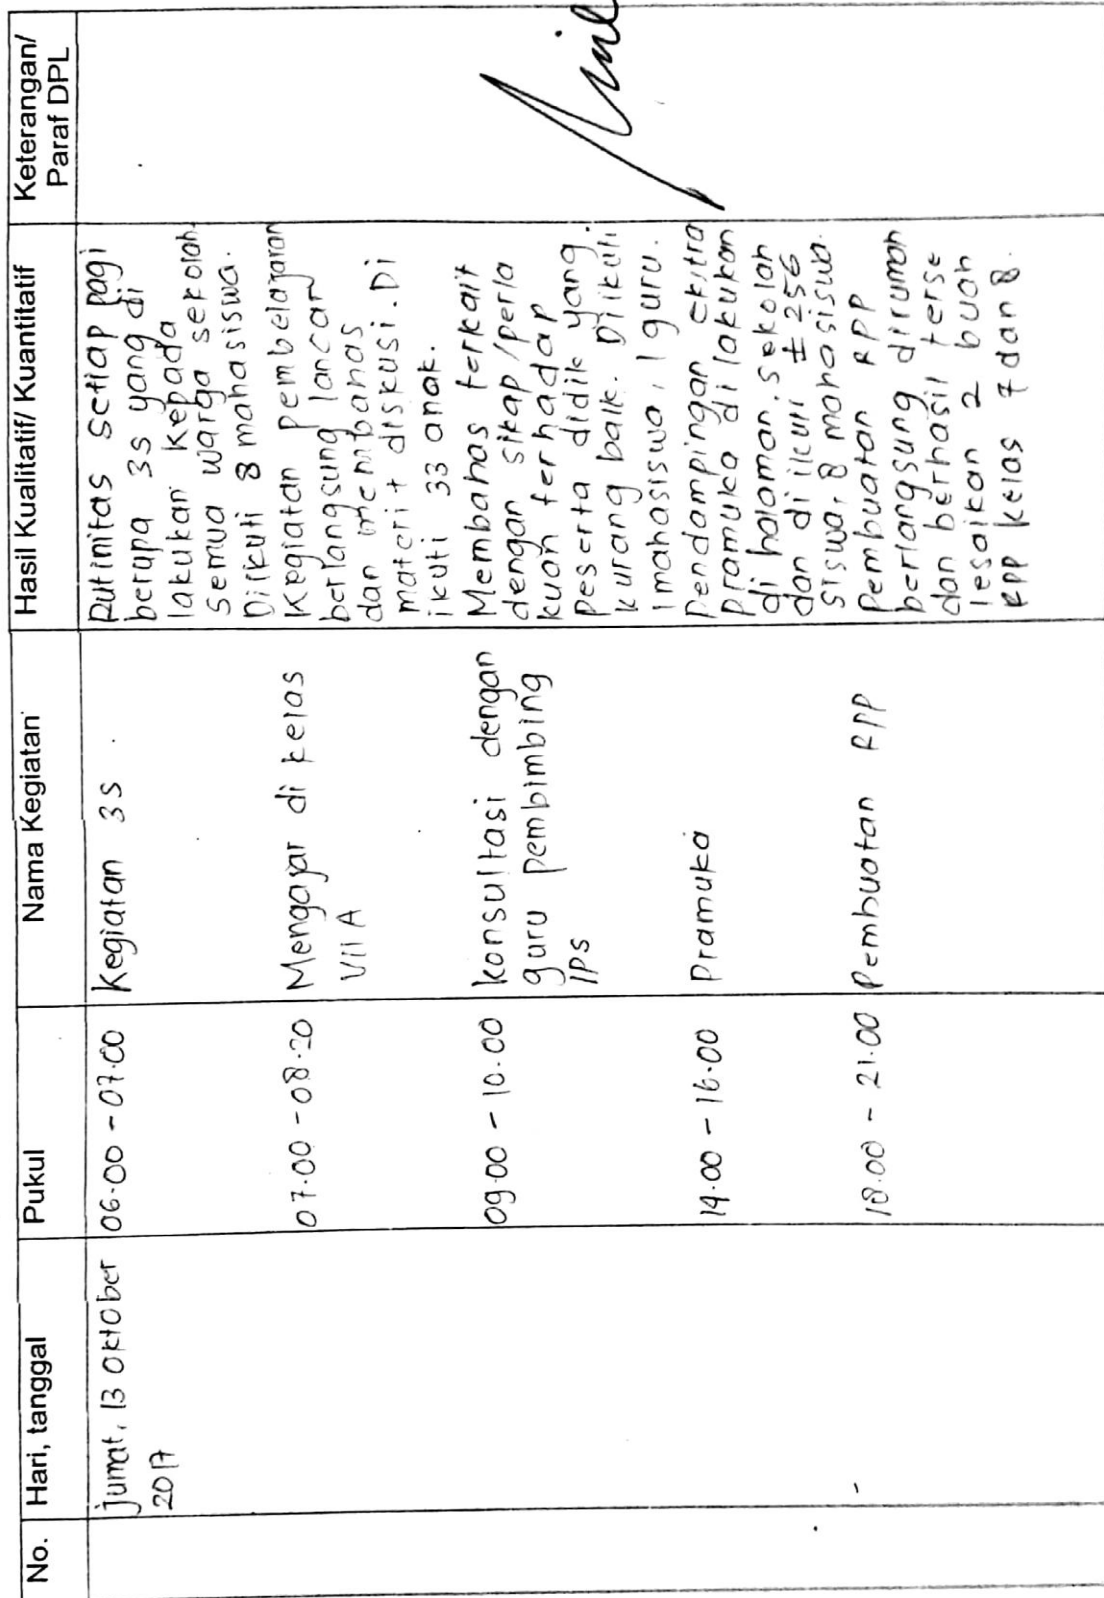 No.
Hari, tanggal
Pukul
Nama Kegiatan
Hasil Kualitatif/ Kuantitatif
Keterangan/
Paraf DPL
Jumat, 13 Oktober
2017
06.00 - 07.00
Kegiatan 3S
Rutinitas setiap pagi
berupa 3s yang di
lakukan kepada
semua warga sekolah.
Diikuti 8 mahasiswa.
07.00 - 08.20
Mengajar di kelas
VII A
Kegiatan pembelajaran
berlangsung lancar
dan membahas
materi + diskusi. Di
ikuti 33 anak.
09.00 - 10.00
Konsultasi dengan
guru pembimbing
IPS
Membahas terkait
dengan sikap/perla
kuan terhadap
peserta didik yang
kurang baik. Diikuti
1 mahasiswa, 1 guru.
14.00 - 16.00
Pramuka
Pendampingan ekstra
pramuka dilakukan
di halaman sekolah
dan diikuti ± 256
siswa, 8 mahasiswa.
18.00 - 21.00
Pembuatan RPP
Pembuatan RPP
berlangsung dirumah
dan berhasil terse
lesaikan 2 buah
RPP kelas 7 dan 8.